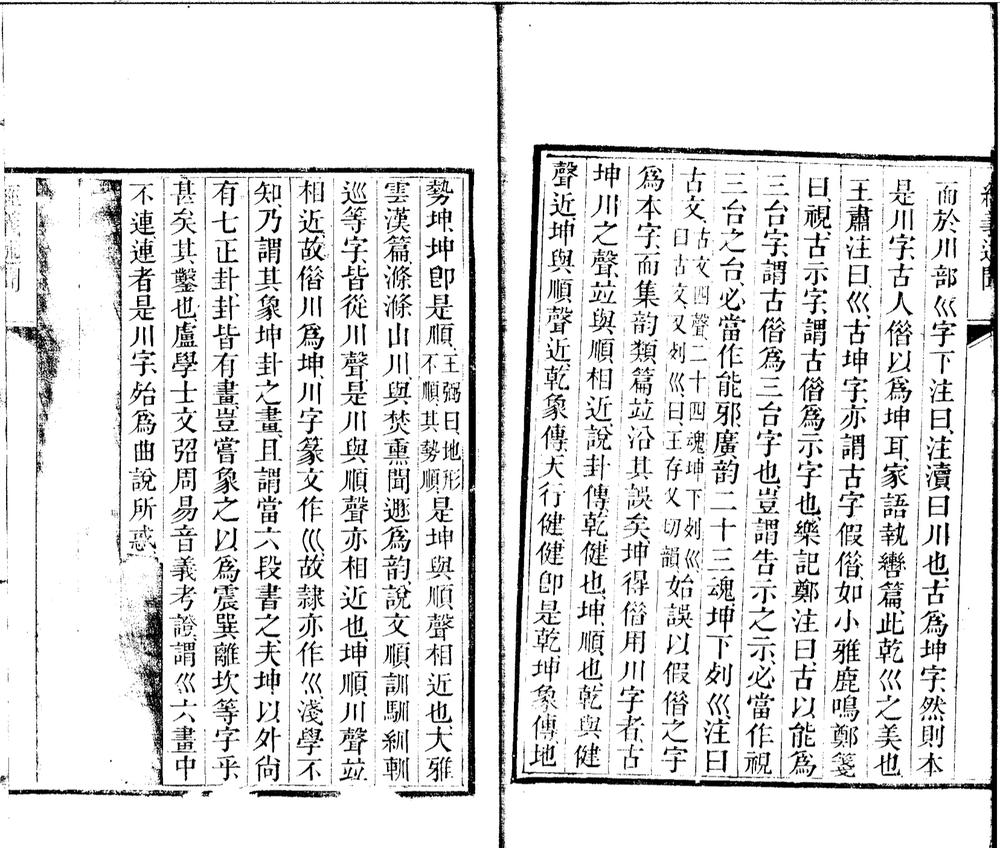 經義述聞
而於川部巛字下注曰注瀆曰川也古爲坤字然則本
是川字古人借以爲坤耳家語執轡篇此乾巛之美也
王肅注曰巛古坤字亦謂古字假借如小雅鹿鳴鄭箋
曰視古示字謂古借爲示字也樂記鄭注曰古以能爲
三台字謂古借爲三台字也豈謂告示之示必當作視
三台之台必當作能邪廣韵二十三魂坤下列巛注曰
古文古文四聲二十四魂坤下列巛
曰古文又列巛曰王存乂切韻始誤以假借之字
爲本字而集韵類篇竝沿其誤矣坤得借用川字者古
坤川之聲竝與順相近說卦傳乾健也坤順也乾與健
聲近坤與順聲近乾象傳天行健健卽是乾坤象傳地
勢坤坤卽是順王弼曰地形
不順其勢順是坤與順聲相近也大雅
雲漢篇滌滌山川與焚熏聞遯爲韵說文順訓馴紃軔
巡等字皆從川聲是川與順聲亦相近也坤順川聲竝
相近故借川爲坤川字篆文作巛故隸亦作巛淺學不
知乃謂其象坤卦之畫且謂當六段書之夫坤以外尙
有七正卦卦皆有畫豈嘗象之以爲震巽離坎等字乎
甚矣其鑿也盧學士文弨周易音義考證謂巛六畫中
不連連者是川字殆爲曲說所惑